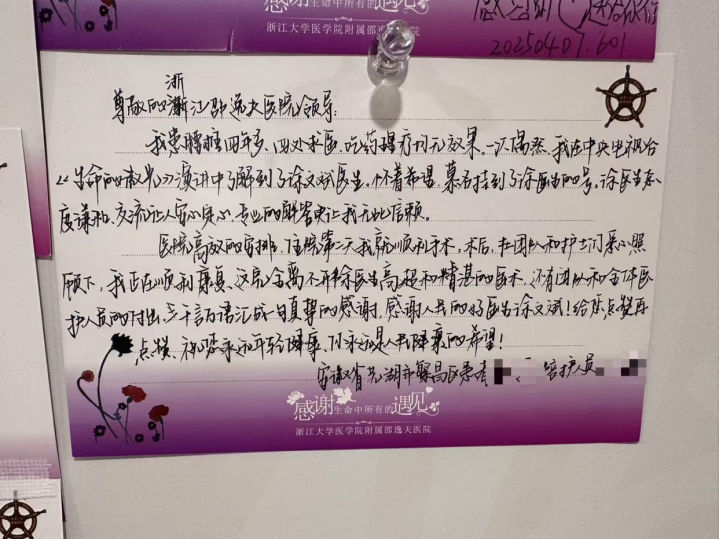 感谢生命中所有的遇见
浙江大学医学院附属邵逸夫医院
20250407.601
浙
尊敬的浙江邵逸夫医院领导:
我患腰椎四年多,四处求医,吃药理疗均无效果。一次偶然,我在中央电视台
《生命的救光》演讲中了解到了徐文斌医生,怀着希望,慕名挂到了徐医生的号,徐医生态
度谦和,交流让人安心定心,专业的解答更让我无比信赖。
医院高效的安排,住院第二天我就顺利手术,术后,在团队和护士们悉心照
顾下,我正在顺利康复,这完全离不开徐医生高超和精湛的医术,还有团队和全体医
护人员的付出,千言万语汇成一句真挚的感谢,感谢人民的好医生徐文斌!给您点赞再
点赞,祝您永远年轻健康,您永远是人民健康的希望!
安徽省芜湖市繁昌区患者 陪护人员
感谢生命中所有的遇见
浙江大学医学院附属邵逸夫医院